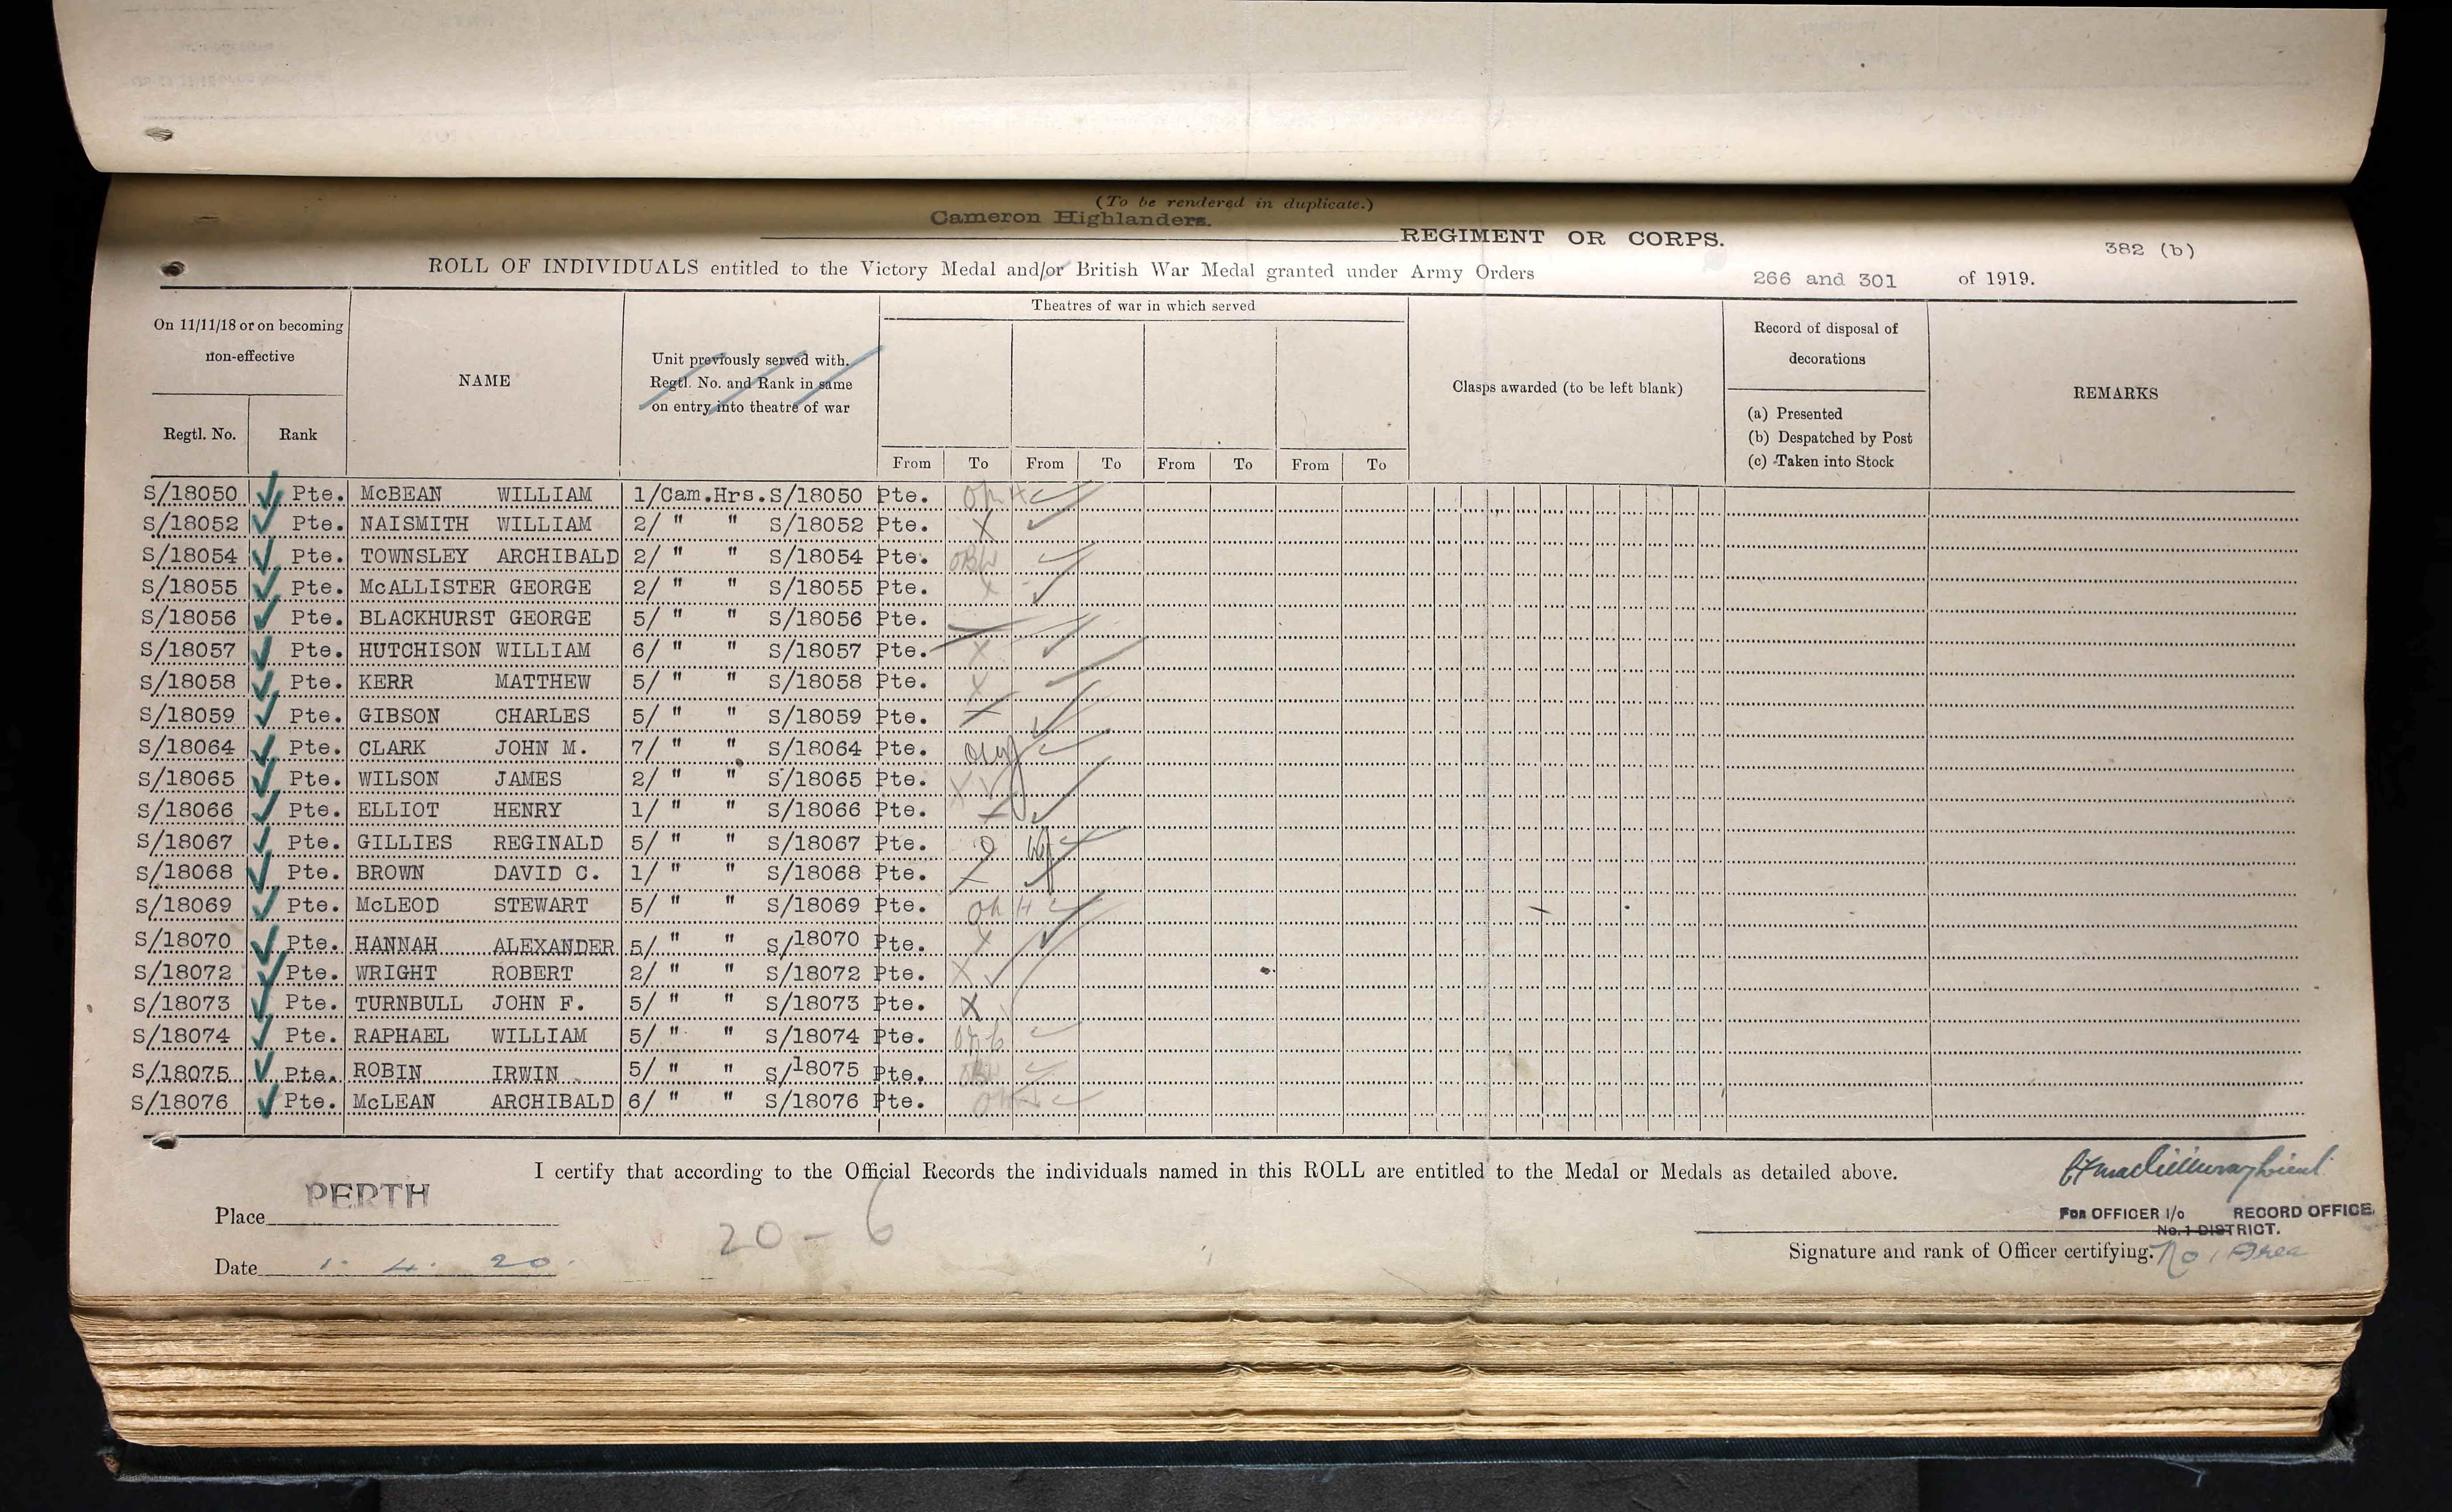 (To be rendered in duplicate.)
Cameron Highlanders.
REGIMENT OR CORPS.
382 (b)
ROLL OF INDIVIDUALS entitled to the Victory Medal and/or British War Medal granted under Army Orders 266 and 301 of 1919.
On 11/11/18 or on becoming
non-effective
Regtl. No.
Rank
NAME
Unit previously served with.
Regtl. No. and Rank in same
on entry into theatre of war
Theatres of war in which served
From To From To From To From To
Clasps awarded (to be left blank)
Record of disposal of
decorations
(a) Presented
(b) Despatched by Post
(c) Taken into Stock
REMARKS
S/18050 Pte. McBEAN WILLIAM 1/Cam.Hrs. S/18050 Pte.
S/18052 Pte. NAISMITH WILLIAM 2/ " " S/18052 Pte. X
S/18054 Pte. TOWNSLEY ARCHIBALD 2/ " " S/18054 Pte.
S/18055 Pte. McALLISTER GEORGE 2/ " " S/18055 Pte. X
S/18056 Pte. BLACKHURST GEORGE 5/ " " S/18056 Pte.
S/18057 Pte. HUTCHISON WILLIAM 6/ " " S/18057 Pte. X
S/18058 Pte. KERR MATTHEW 5/ " " S/18058 Pte. X
S/18059 Pte. GIBSON CHARLES 5/ " " S/18059 Pte. X
S/18064 Pte. CLARK JOHN M. 7/ " " S/18064 Pte.
S/18065 Pte. WILSON JAMES 2/ " " S/18065 Pte. X
S/18066 Pte. ELLIOT HENRY 1/ " " S/18066 Pte. X
S/18067 Pte. GILLIES REGINALD 5/ " " S/18067 Pte.
S/18068 Pte. BROWN DAVID C. 1/ " " S/18068 Pte. X
S/18069 Pte. McLEOD STEWART 5/ " " S/18069 Pte.
S/18070 Pte. HANNAH ALEXANDER 5/ " " S/18070 Pte. X
S/18072 Pte. WRIGHT ROBERT 2/ " " S/18072 Pte. X
S/18073 Pte. TURNBULL JOHN F. 5/ " " S/18073 Pte. X
S/18074 Pte. RAPHAEL WILLIAM 5/ " " S/18074 Pte.
S/18075 Pte. ROBIN IRWIN 5/ " " S/18075 Pte.
S/18076 Pte. McLEAN ARCHIBALD 6/ " " S/18076 Pte.
I certify that according to the Official Records the individuals named in this ROLL are entitled to the Medal or Medals as detailed above.
Place PERTH
20 - 6
FOR OFFICER I/c RECORD OFFICE.
No. 1 DISTRICT.
Date 1. 4. 20.
Signature and rank of Officer certifying. No 1 Area